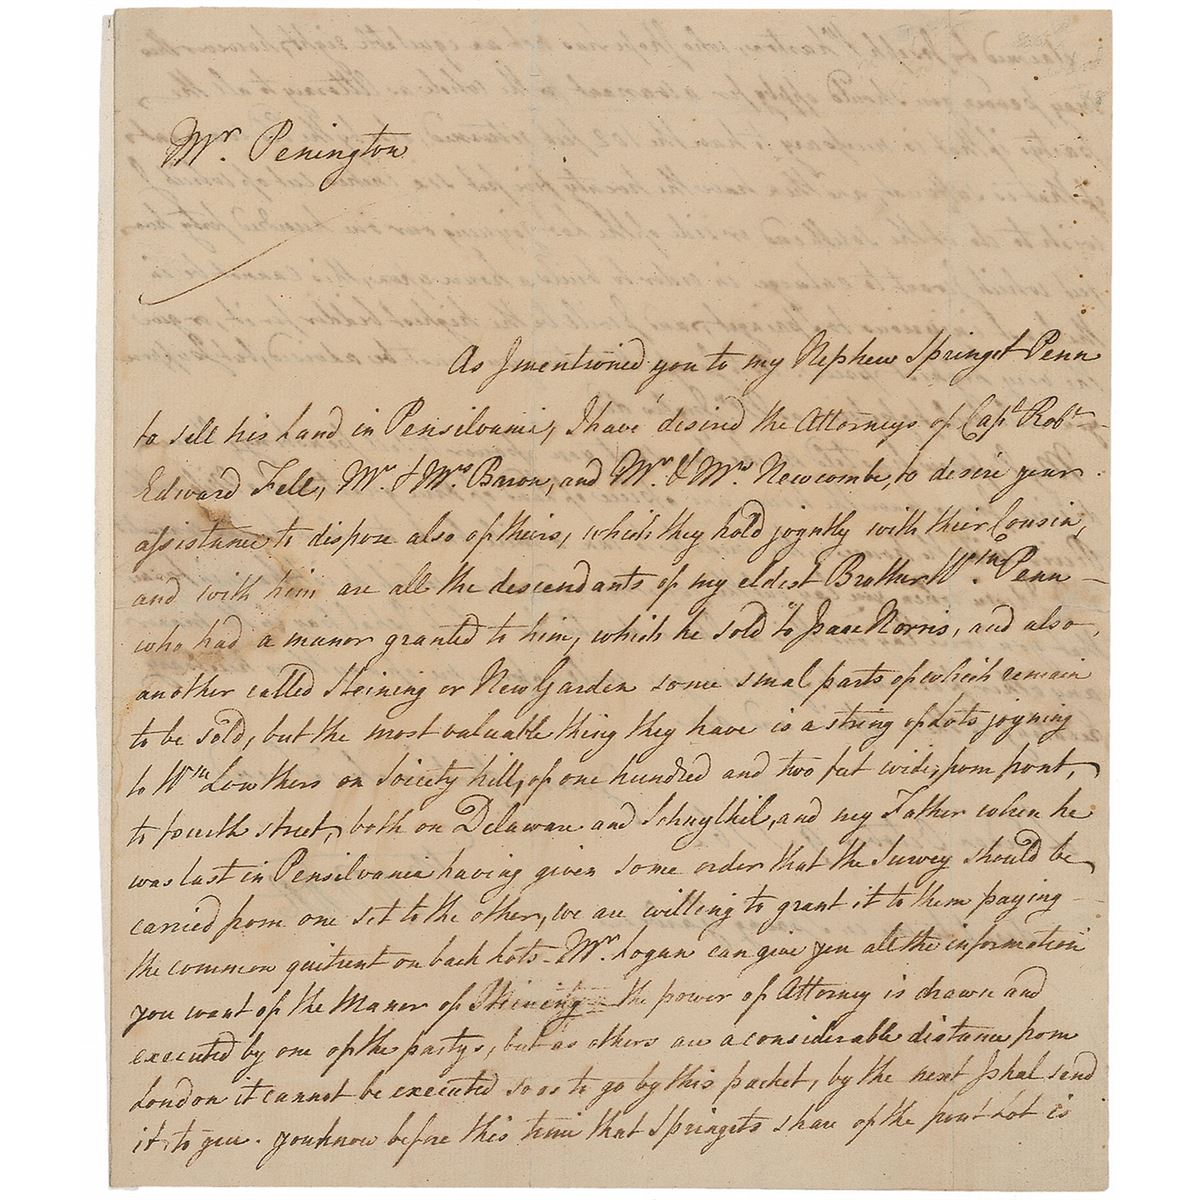 Mr. Penington
As I mentioned you to my Nephew Springet Penn
to sell his Land in Pensilvania, I have desired the Attorneys of Capt. Robt.
Edward Fell, Mr. & Mrs. Baron, and Mr. & Mrs. Newcombe, to desire your
assistance to dispose also of theirs, which they hold joyntly with their Cousin,
and with him are all the descendants of my eldest Brother Wm. Penn
who had a manor granted to him, which he sold to Isaac Norris, and also
another called Steining or New Garden some smal parts of which remain
to be sold, but the most valuable thing they have is a string of Lots joyning
to Wm. Lowthers on Soiciety hill, of one hundred and two feet wide, from front,
to fourth street, both on Delaware and Schuylkil, and my Father when he
was last in Pensilvania having given some order that the Survey should be
carried from one set to the other, we are willing to grant it to them paying
the common quitrent on back Lots - Mr. Logan can give you all the information
you want of the Manor of Steining - the power of Attorney is drawn and
executed by one of the partys, but as others are a considerable distance from
London it cannot be executed so as to go by this packet, by the next I shal send
it to you. you know before this time that Springets share of the front Lot is